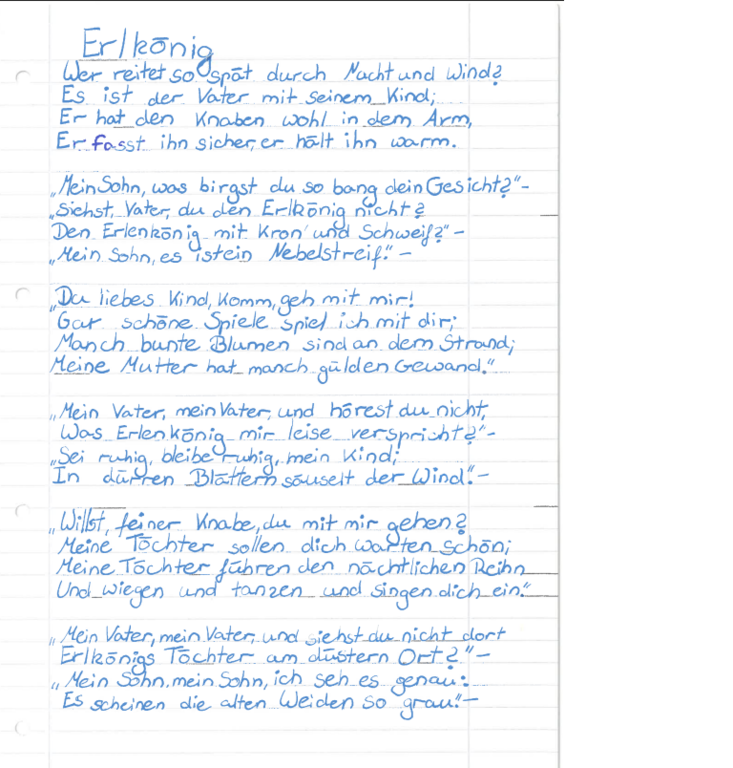 Erlkönig
Wer reitet so spät durch Nacht und Wind?
Es ist der Vater mit seinem Kind;
Er hat den Knaben wohl in dem Arm,
Er fasst ihn sicher, er hält ihn warm.
„Mein Sohn, was birgst du so bang dein Gesicht?" –
„Siehst, Vater, du den Erlkönig nicht?
Den Erlenkönig mit Kron' und Schweif?" –
„Mein Sohn, es ist ein Nebelstreif." –
„Du liebes Kind, komm, geh mit mir!
Gar schöne Spiele spiel ich mit dir;
Manch bunte Blumen sind an dem Strand;
Meine Mutter hat manch gülden Gewand."
„Mein Vater, mein Vater, und hörest du nicht,
Was Erlenkönig mir leise verspricht?" –
„Sei ruhig, bleibe ruhig, mein Kind;
In dürren Blättern säuselt der Wind." –
„Willst, feiner Knabe, du mit mir gehen?
Meine Töchter sollen dich warten schön;
Meine Töchter führen den nächtlichen Reihn
Und wiegen und tanzen und singen dich ein."
„Mein Vater, mein Vater, und siehst du nicht dort
Erlkönigs Töchter am düstern Ort?" –
„Mein Sohn, mein Sohn, ich seh es genau:
Es scheinen die alten Weiden so grau." –